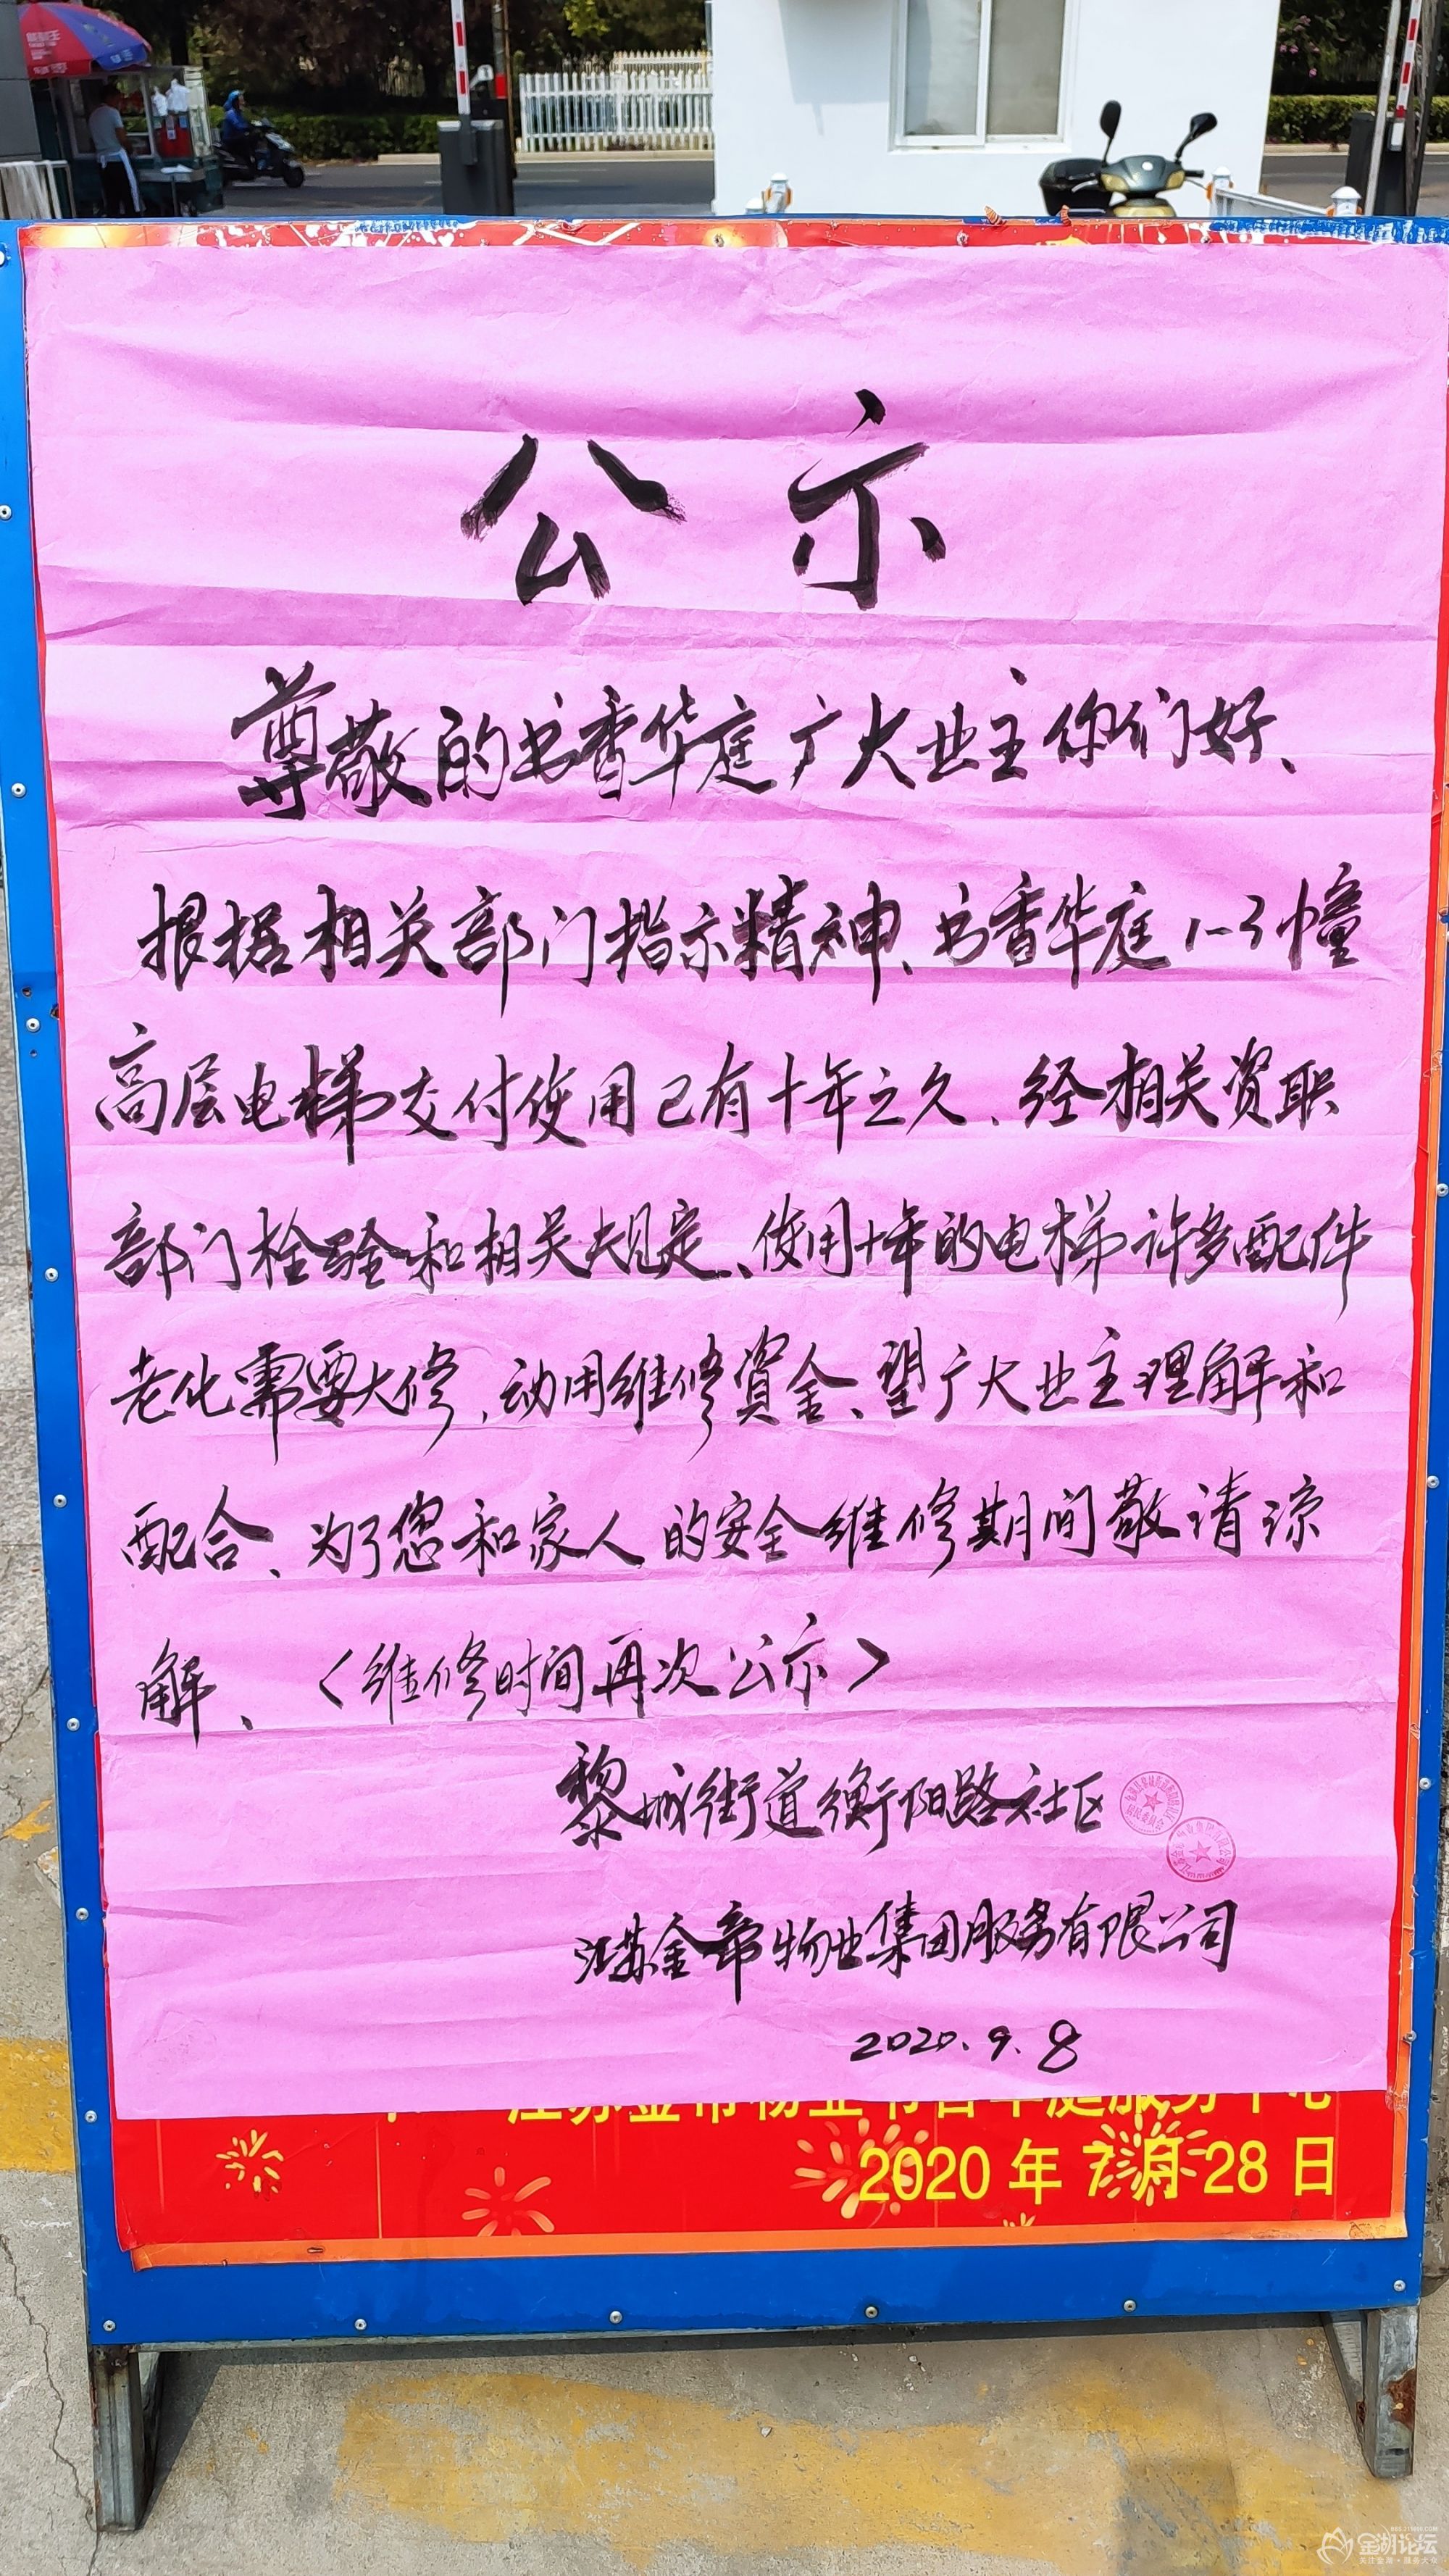 公示
尊敬的书香华庭广大业主你们好、
根据相关部门指示精神、书香华庭1-3幢
高层电梯交付使用已有十年之久、经相关资职
部门检验和相关规定、使用十年的电梯许多配件
老化需要大修、动用维修資金、望广大业主理解和
配合、为了您和家人的安全维修期间敬请谅
解、〈维修时间再次公示〉
黎城街道衡阳路社区
江苏金帝物业集团服务有限公司
2020.9.8
江苏金帝物业书香华庭服务中心
2020年7月28日
金湖论坛